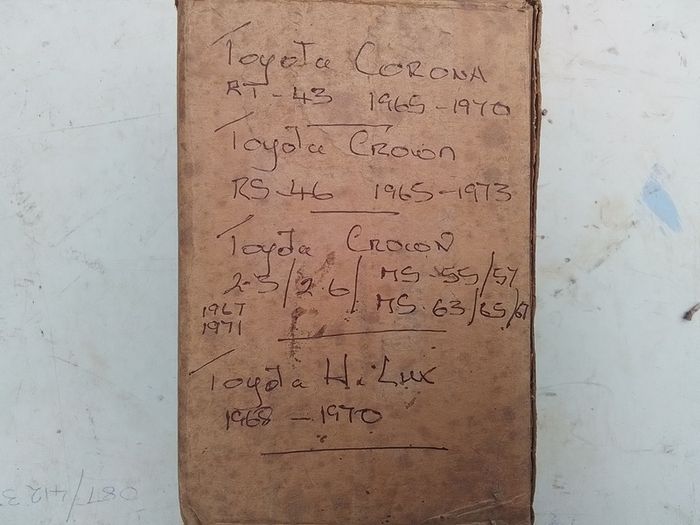 Toyota CORONA
RT-43 1965-1970
Toyota CROWN
RS-46 1965-1973
Toyota CROWN
2-3/2.6/ MS-55/57
1967 MS-63/65/67
1971
Toyota HiLux
1968-1970